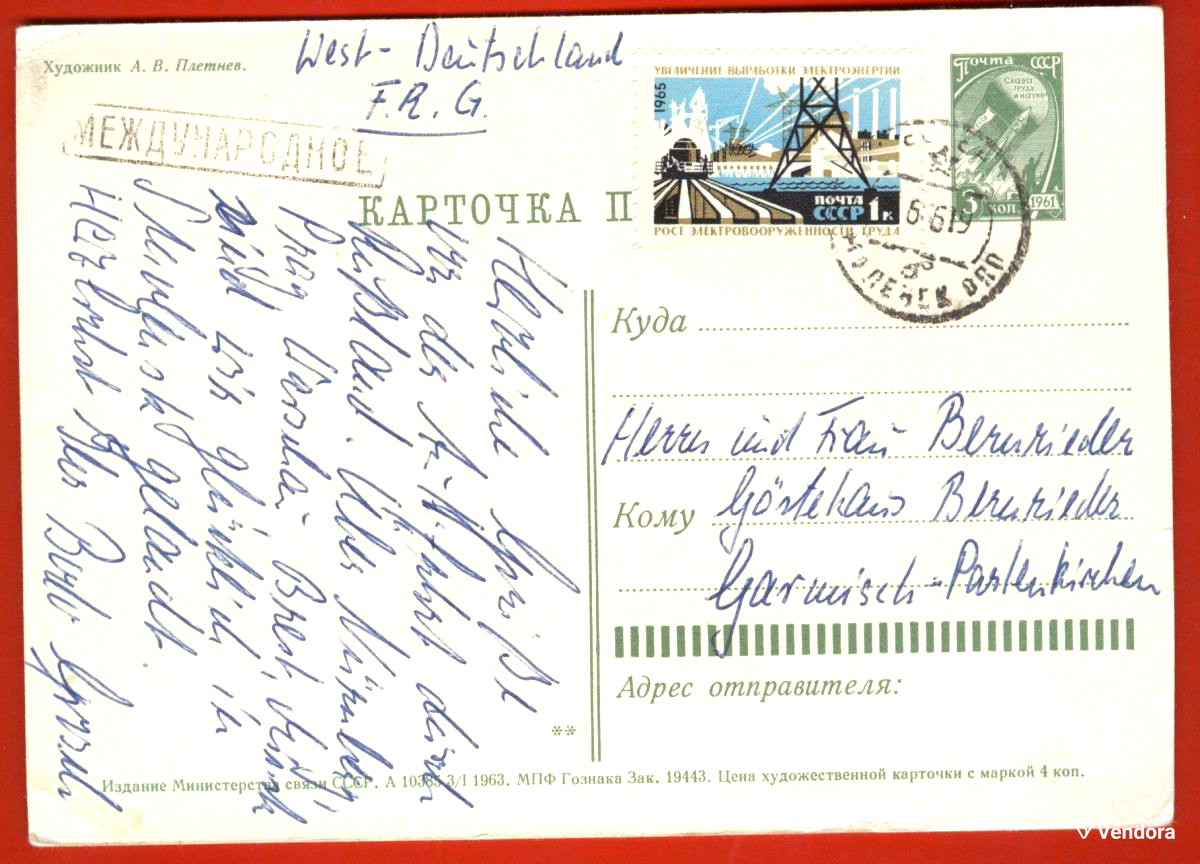 Художник А. В. Плетнев.
West-Deutschland
F.R.G.
МЕЖДУНАРОДНОЕ
КАРТОЧКА П
УВЕЛИЧЕНИЕ ВЫРАБОТКИ ЭЛЕКТРОЭНЕРГИИ
1965
ПОЧТА
СССР 1к
РОСТ ЭЛЕКТРОВООРУЖЕННОСТИ ТРУДА
Почта СССР
СЛАВА
ТРУДУ
И НАУКЕ!
3 КОП. 1961
Herzliche Grüße
von der
Rußland. Über Nürnberg,
Prag, Warschau, Brest, Minsk
sind wir glücklich in
Smolensk gelandet.
Herzlichst Ihr
Куда
Herrn und Frau Bernrieder
Кому
Gästehaus Bernrieder
Garmisch-Partenkirchen
Адрес отправителя:
**
Издание Министерства связи СССР. А 10385 3/I 1963. МПФ Гознака Зак. 19443. Цена художественной карточки с маркой 4 коп.
Vendora